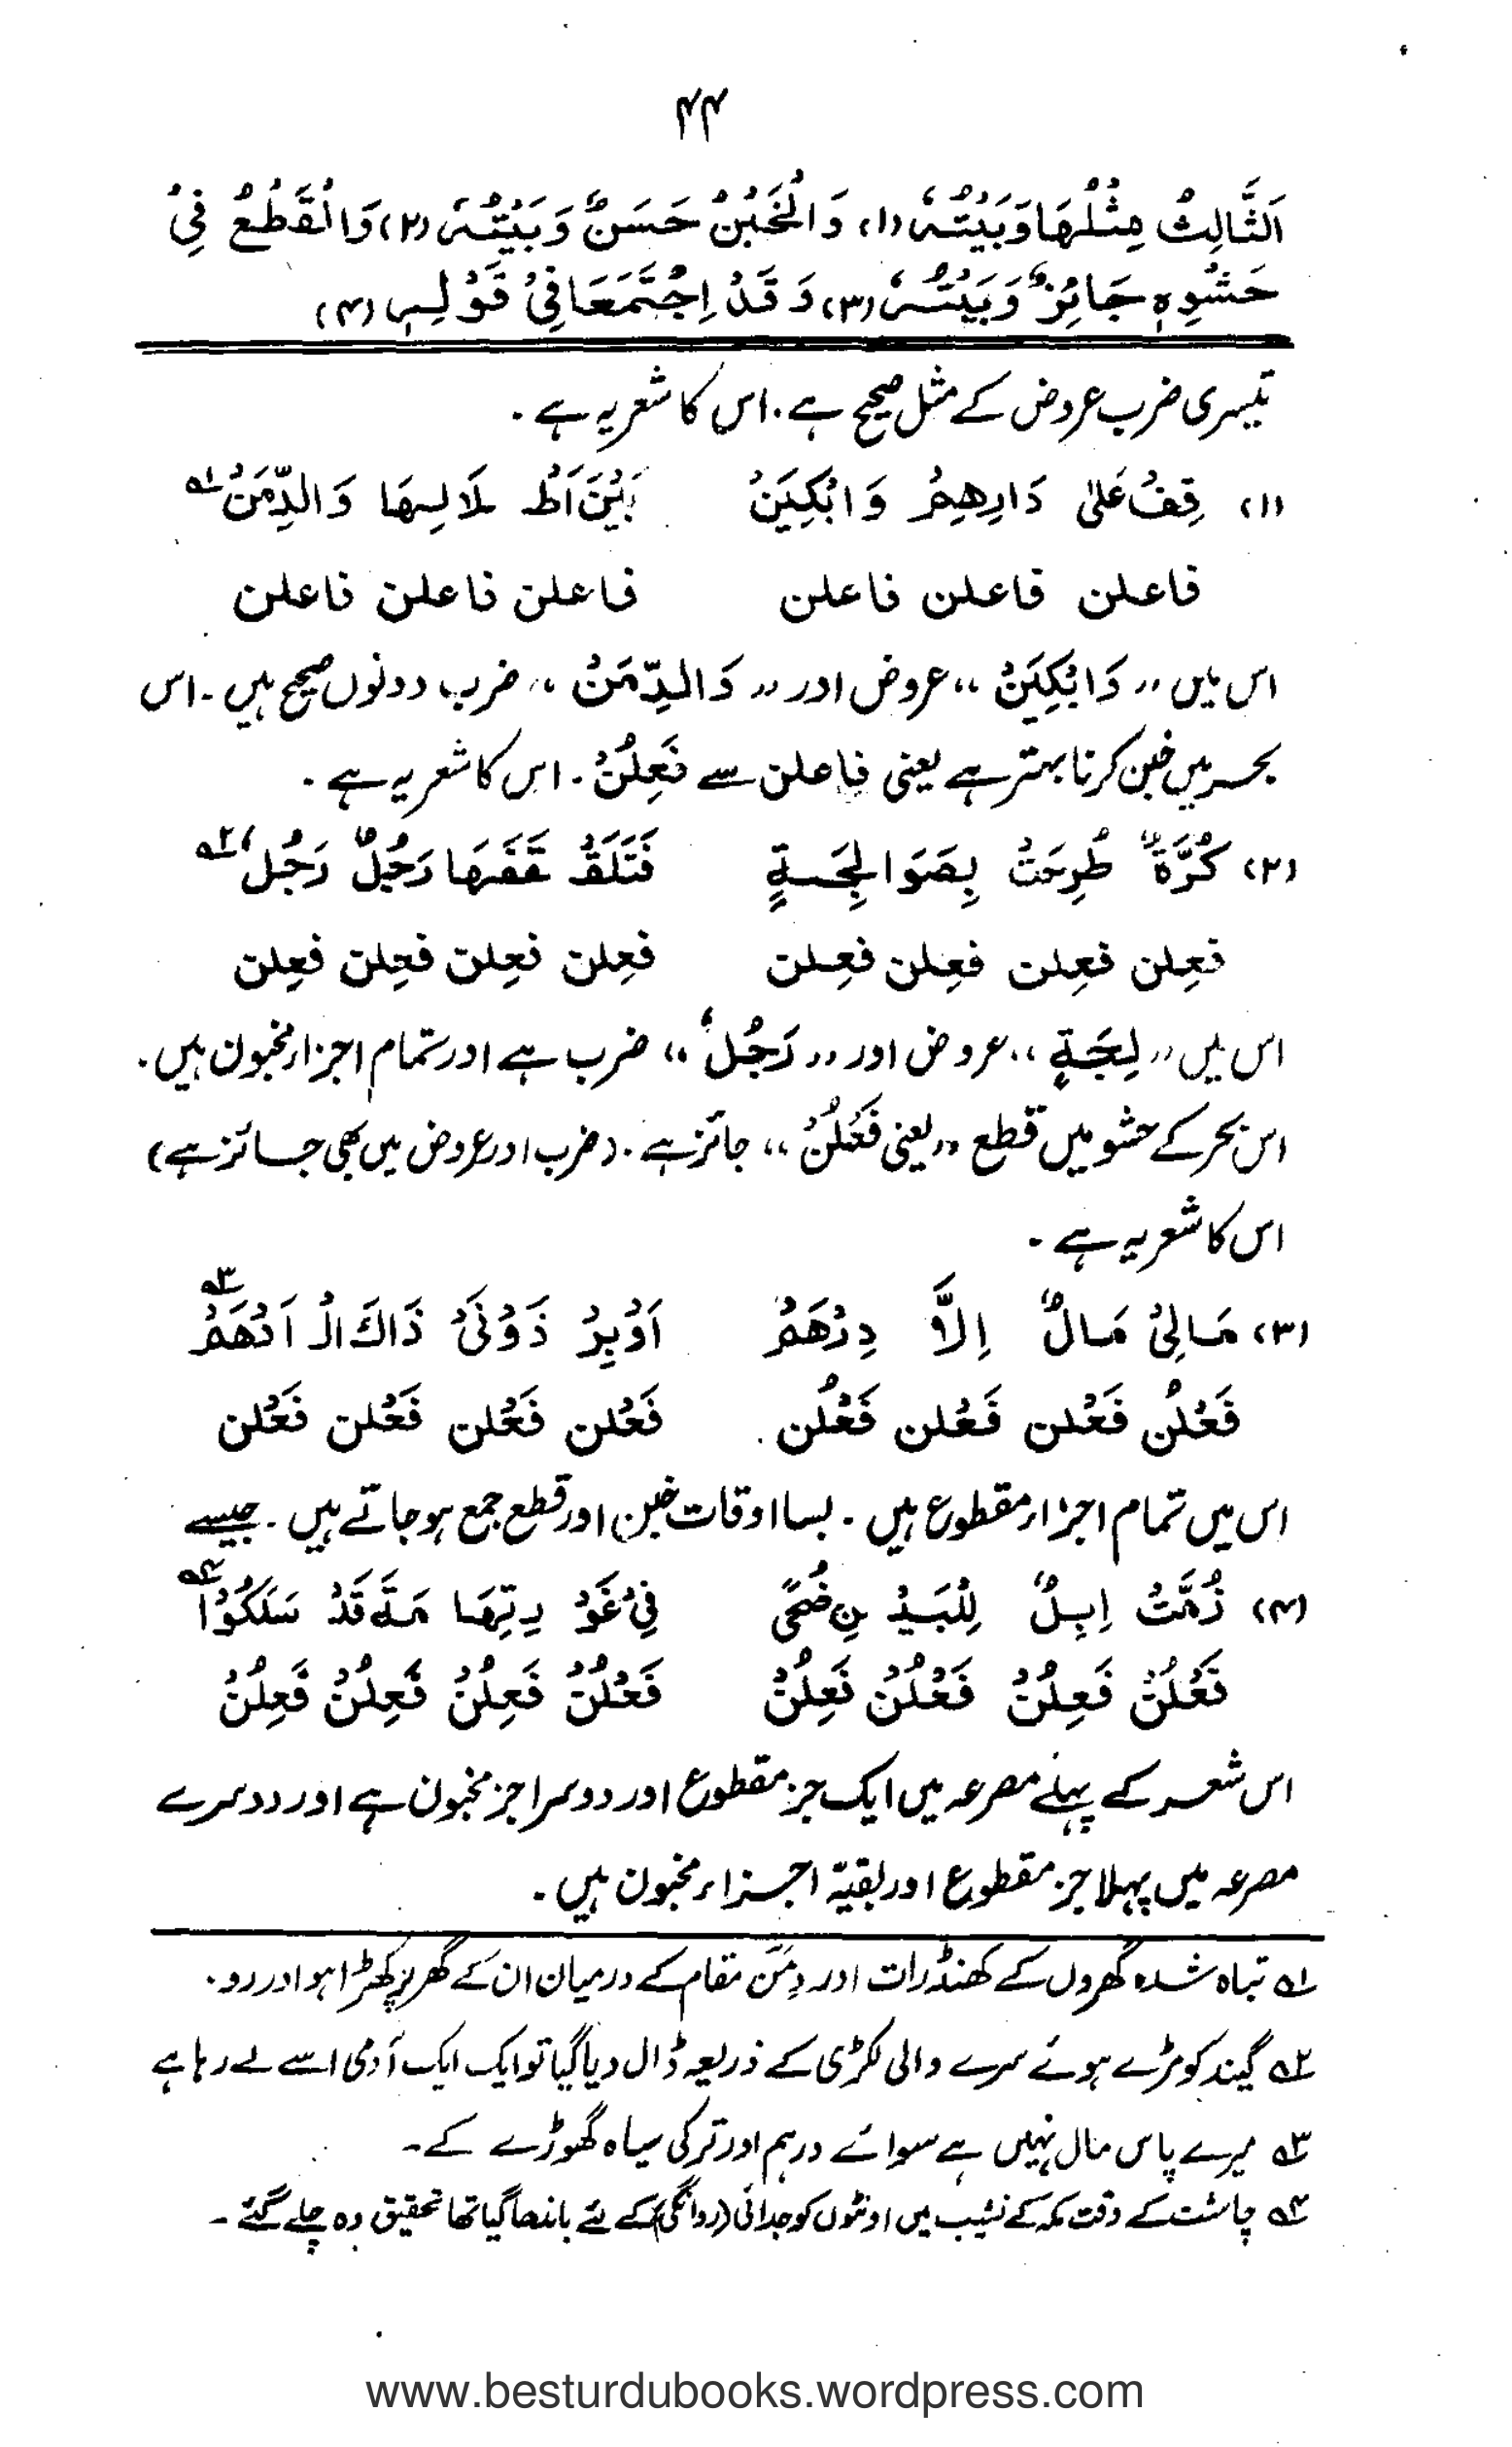 ۴۴
اَلثَّالِثُ مِثْلُهَا وَبَيْتُهُ (۱) وَالْخَبْنُ حَسَنٌ وَبَيْتُهُ (۲) وَالْقَطْعُ فِيْ
حَشْوِهٖ جَائِزٌ وَبَيْتُهُ (۳) وَقَدْ اِجْتَمَعَا فِيْ قَوْلِهٖ (۴)
تیسری ضرب عروض کے مثل صحیح ہے۔ اس کا شعر یہ ہے۔
(۱) قِفْ عَلٰى دَارِهِمْ وَابْكِيَنْ بَيْنَ اَطْ لَالِهَا وَالدِّمَنْ ۱؎
فاعلن فاعلن فاعلن فاعلن فاعلن فاعلن
اس میں ,, وَابْكِيَنْ ،، عروض اور ,, وَالدِّمَنْ ،، ضرب دونوں صحیح ہیں۔ اس
بحر میں خبن کرنا بہتر ہے یعنی فاعلن سے فَعِلُنْ۔ اس کا شعر یہ ہے۔
(۲) كُرَةٌ طُرِحَتْ بِصَوَا لِجَةٍ فَتَلَقْ قَفَهَا رَجُلٌ رَجُلُ ۲؎
فعِلن فعِلن فعِلن فعِلن فعِلن فعِلن فعِلن فعِلن
اس میں ,, لِجَةٍ ،، عروض اور ,, رَجُلُ ،، ضرب ہے اور تمام اجزاء مخبون ہیں۔
اس بحر کے حشو میں قطع ,, یعنی فَعْلُنْ ،، جائز ہے۔ (ضرب اور عروض میں بھی جائز ہے)
اس کا شعر یہ ہے۔
(۳) مَالِيْ مَالٌ اِلَّا دِرْهَمْ اَوْبِرْ ذَوْنَيْ ذَاكَ الْ اَدْهَمْ ۳؎
فَعْلُن فَعْلن فَعْلن فَعْلُن فَعْلن فَعْلن فَعْلن فَعْلن
اس میں تمام اجزاء مقطوع ہیں۔ بسا اوقات خبن اور قطع جمع ہوجاتے ہیں۔ جیسے
(۴) زُمَّتْ اِبِلٌ لِلْبَيْ نِ ضُحًى فِيْ غَوْ رِتِهَا مَةَ قَدْ سَلَكُوْا ۴؎
فَعْلُنْ فَعِلُنْ فَعْلُنْ فَعِلُنْ فَعْلُنْ فَعِلُنْ فَعِلُنْ فَعِلُنْ
اس شعر کے پہلے مصرعہ میں ایک جز مقطوع اور دوسرا جز مخبون ہے اور دوسرے
مصرعہ میں پہلا جز مقطوع اور بقیۃ اجزاء مخبون ہیں۔
۱؎ تباہ شدہ گھروں کے کھنڈرات اور دِمَنْ مقام کے درمیان ان کے گھر پر کھڑا ہو اور رو۔
۲؎ گیند کو مڑے ہوئے سرے والی لکڑی کے ذریعہ ڈال دیا گیا تو ایک ایک آدمی اسے لے رہا ہے
۳؎ میرے پاس مال نہیں ہے سوائے درہم اور ترکی سیاہ گھوڑے کے۔
۴؎ چاشت کے وقت مکہ کے نشیب میں اونٹوں کو جدائی (روانگی) کے لئے باندھا گیا تھا تحقیق وہ چلے گئے۔
www.besturdubooks.wordpress.com